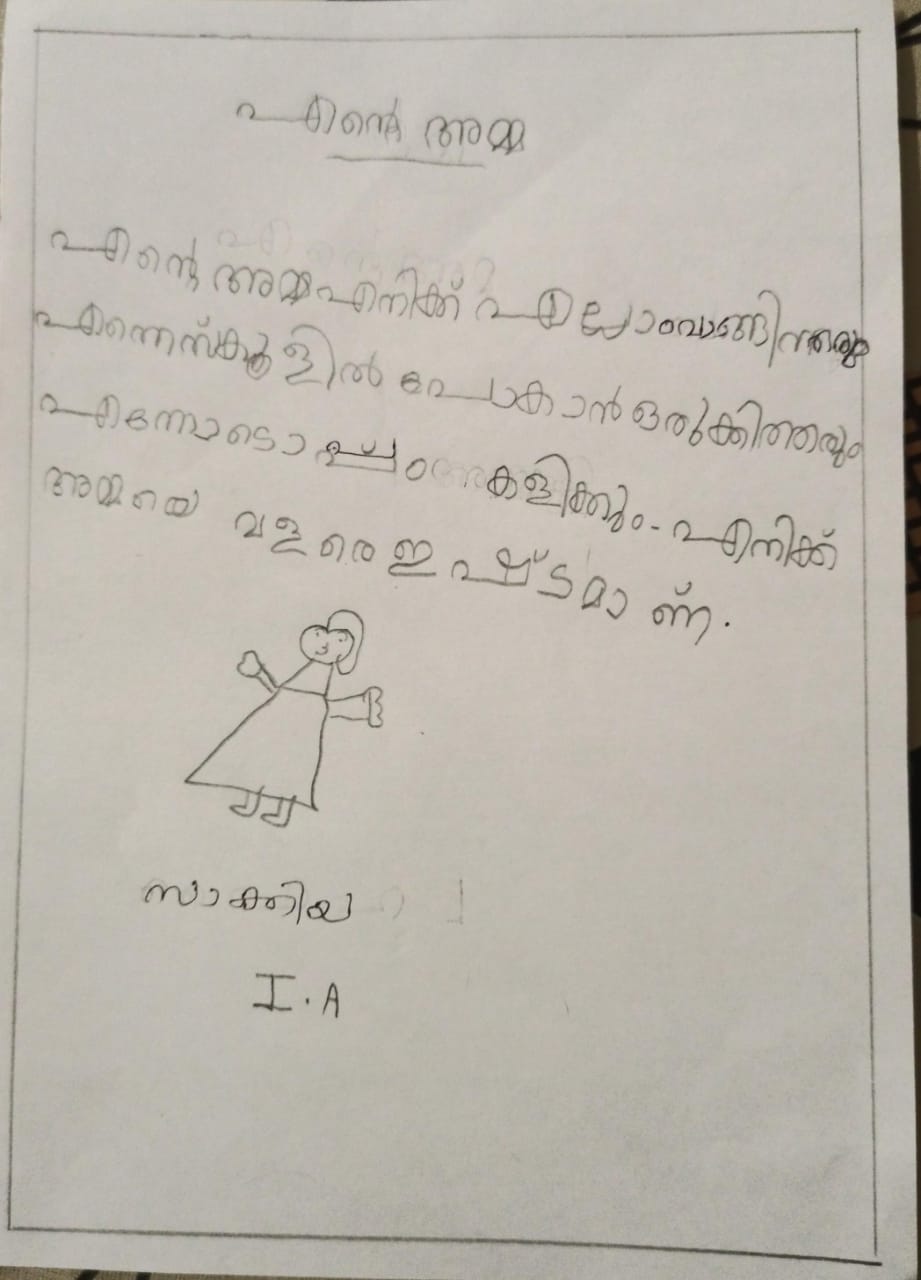 എന്റെ അമ്മ
എന്റെ അമ്മ എനിക്ക് എല്ലാം വാങ്ങിത്തരും
എന്നെ സ്കൂളിൽ പോകാൻ ഒരുക്കിത്തരും
എന്നോടൊപ്പം കളിക്കും. എനിക്ക്
അമ്മയെ വളരെ ഇഷ്ടമാണ്.
I. A